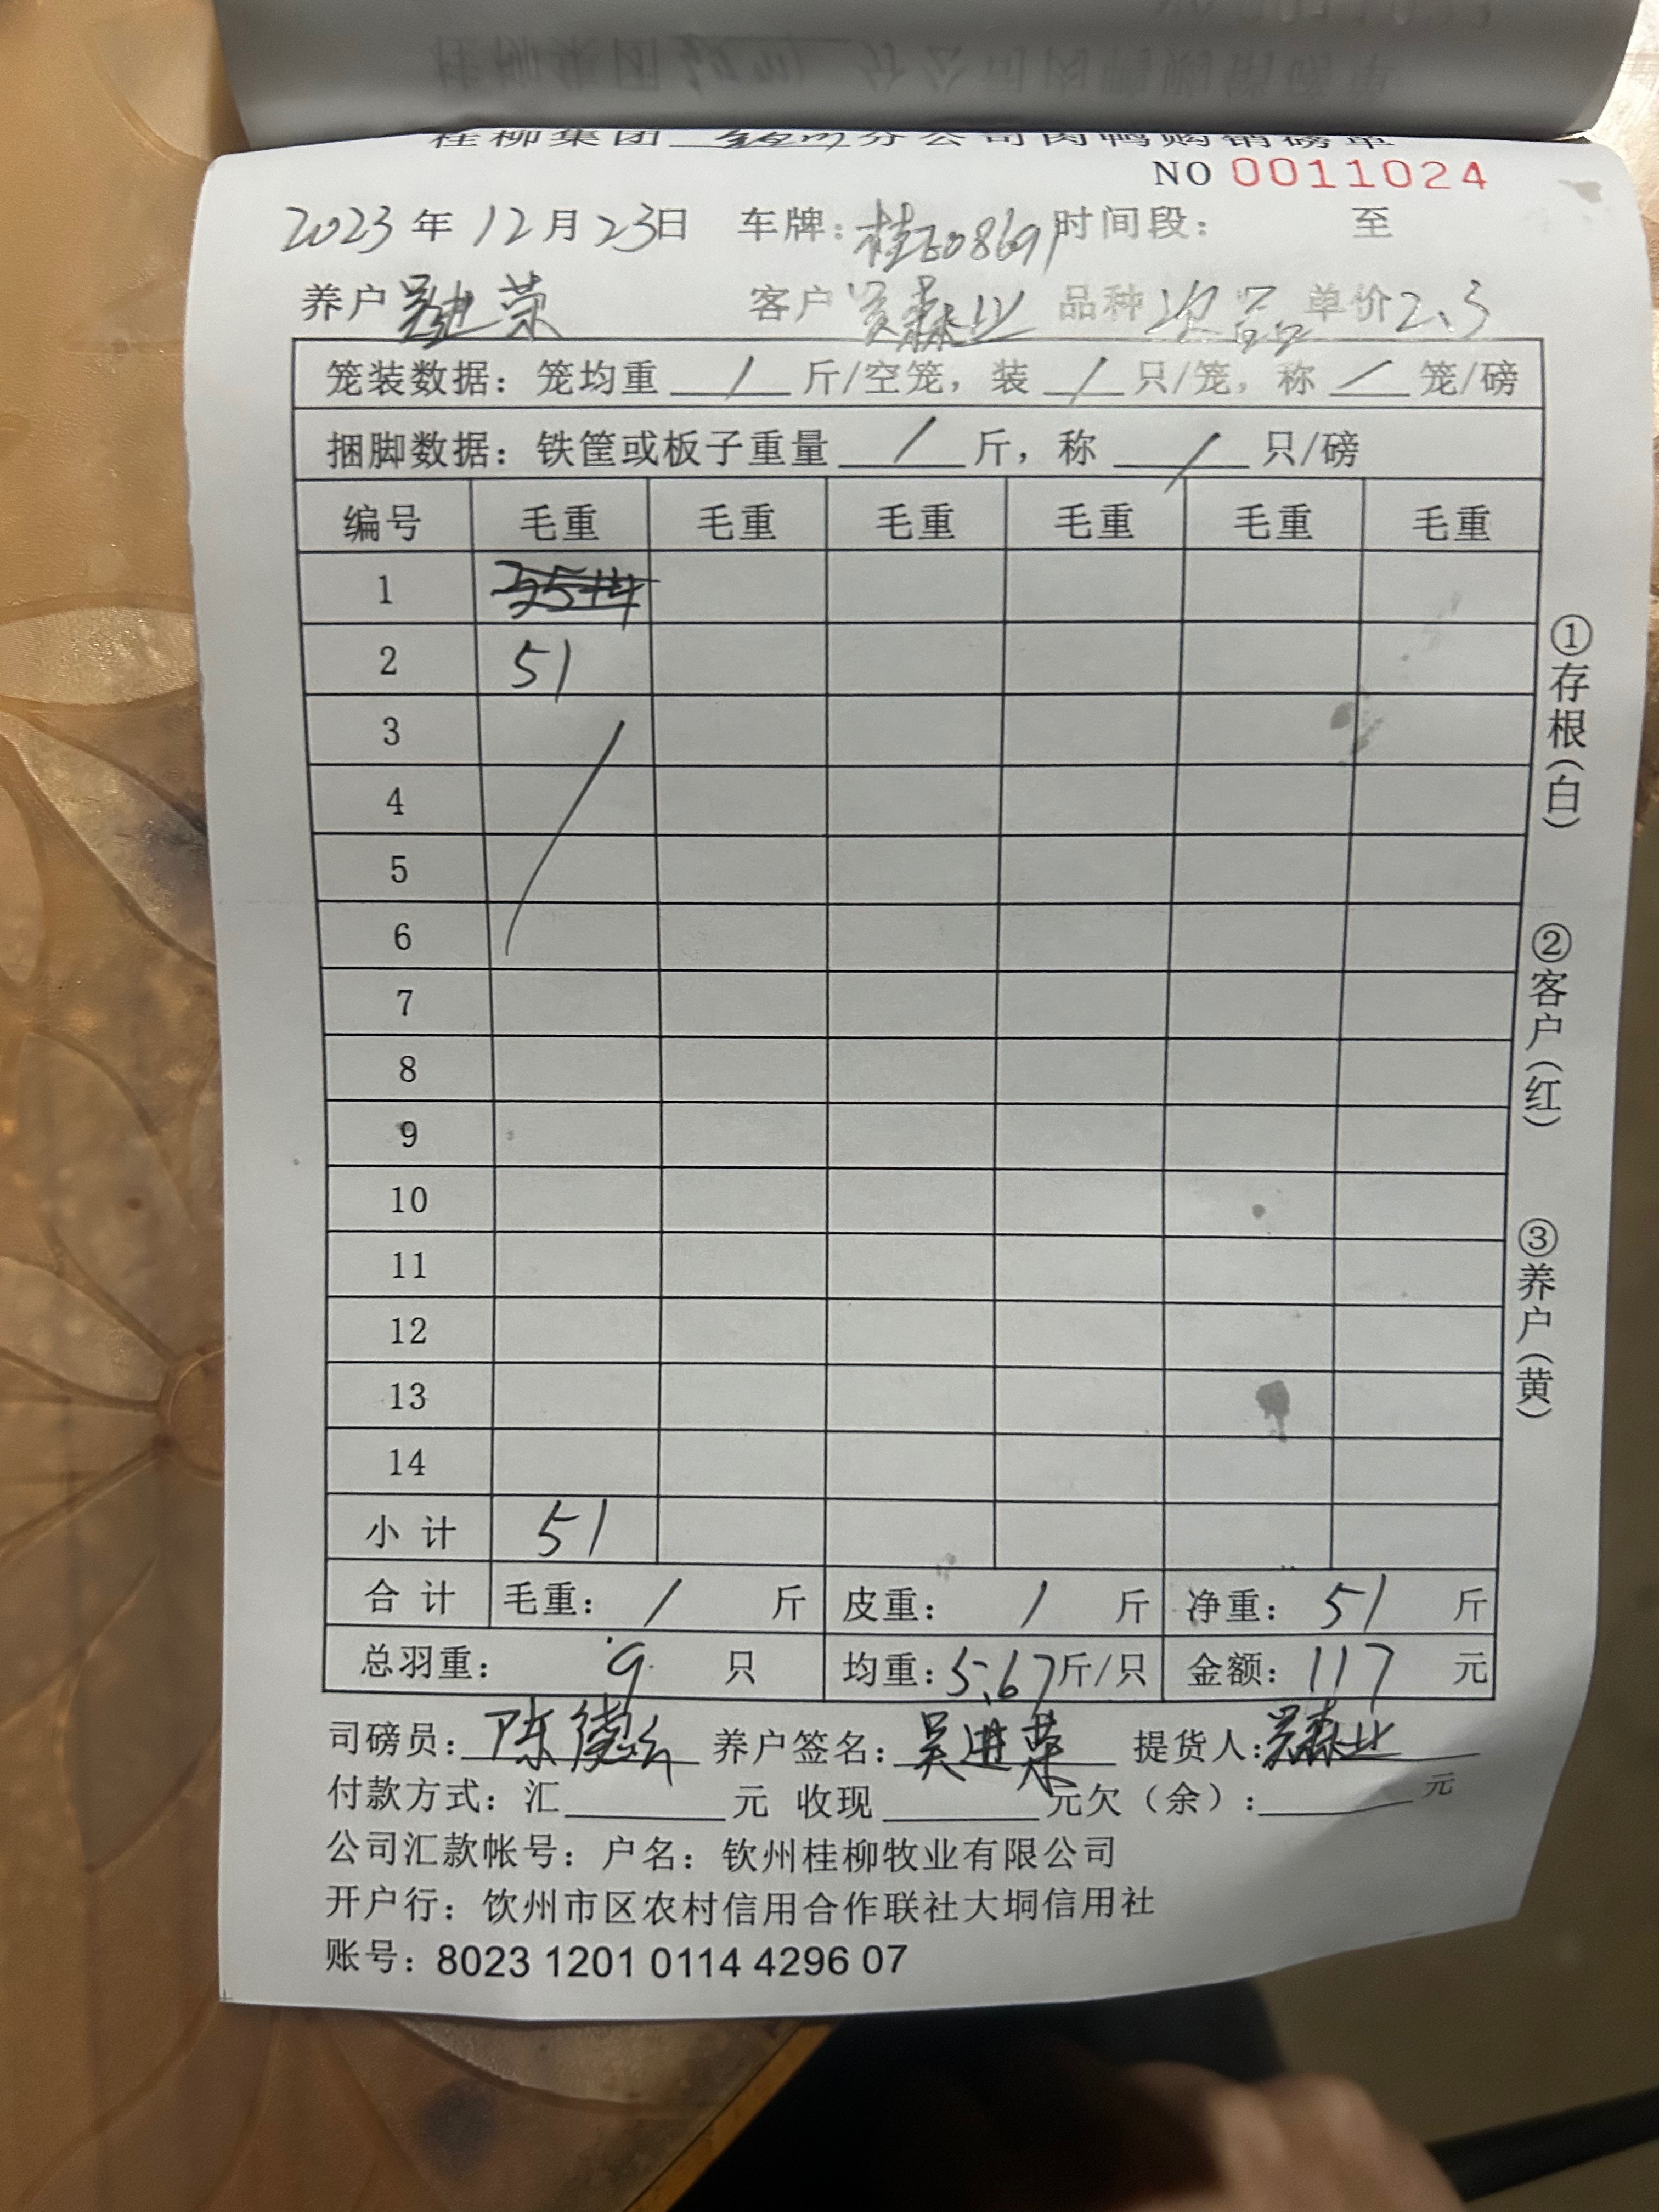 桂柳集团 钦州 分公司肉鸭购销磅单
NO 0011024
2023年12月23日 车牌: 时间段: 至
养户 吴进荣 客户 吴森业 品种 次品 单价 2.3
笼装数据: 笼均重 / 斤/空笼, 装 / 只/笼, 称 / 笼/磅
捆脚数据: 铁筐或板子重量 / 斤, 称 / 只/磅
编号 毛重 毛重 毛重 毛重 毛重 毛重
1
2 51
3
4
5
6
7
8
9
10
11
12
13
14
小计 51
合计 毛重: / 斤 皮重: / 斤 净重: 51 斤
总羽重: 9 只 均重: 5.67斤/只 金额: 117 元
司磅员: 陈 养户签名: 吴进荣 提货人: 吴森业
付款方式: 汇 元 收现 元欠(余): 元
公司汇款帐号: 户名: 钦州桂柳牧业有限公司
开户行: 钦州市区农村信用合作联社大垌信用社
账号: 8023 1201 0114 4296 07
①存根(白)
②客户(红)
③养户(黄)